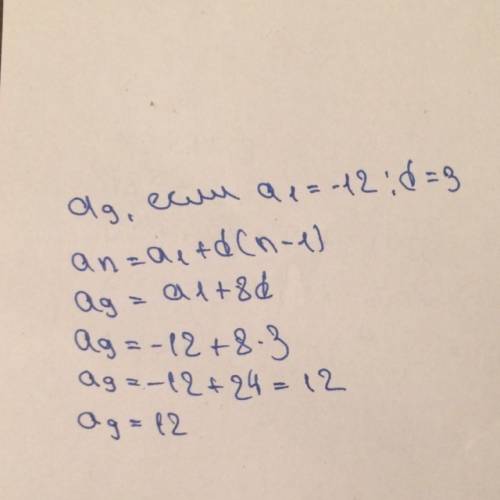 a₉, если a₁ = -12; d = 3
aₙ = a₁ + d(n-1)
a₉ = a₁ + 8d
a₉ = -12 + 8·3
a₉ = -12 + 24 = 12
a₉ = 12